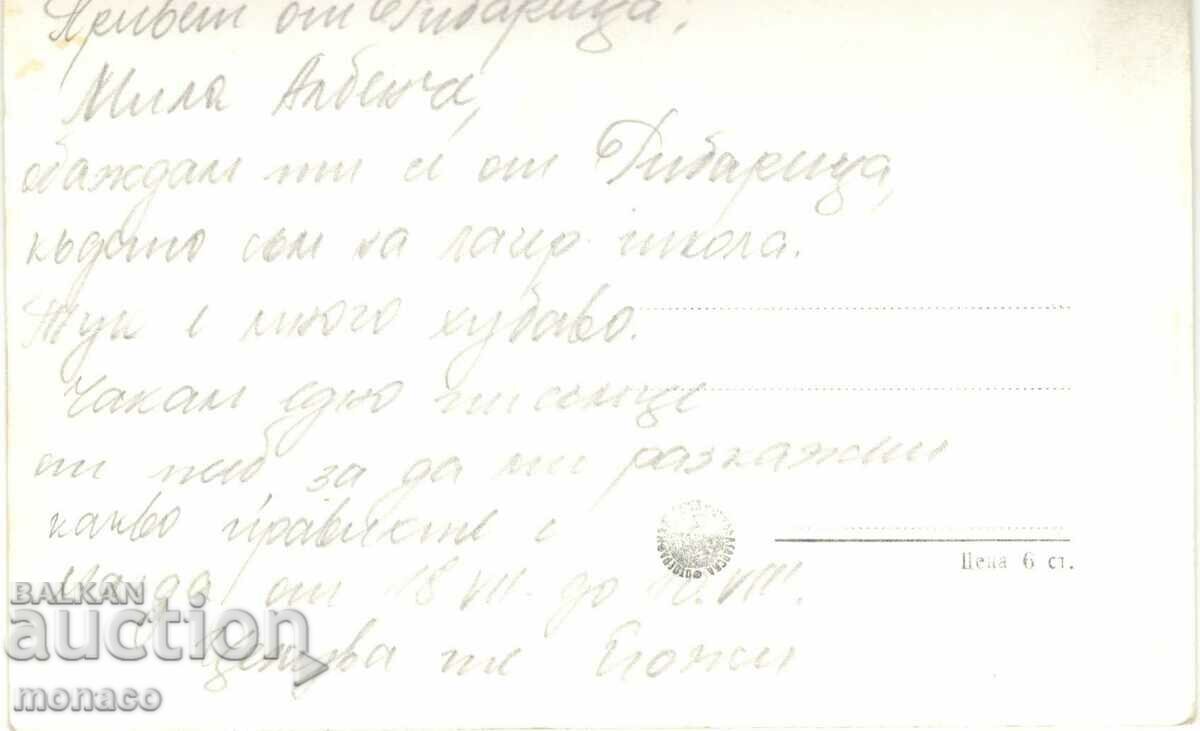 Привет от Рибарица!
Мила Албена,
обаждам ти се от Рибарица,
където съм на лагер школа.
Тук е много хубаво.
Чакам едно писъмце
от теб за да ми разкажеш
какво правихте с
от 18 VII. до 10. VIII.
Целува те
Цена 6 ст.
BALKAN
auction
monaco